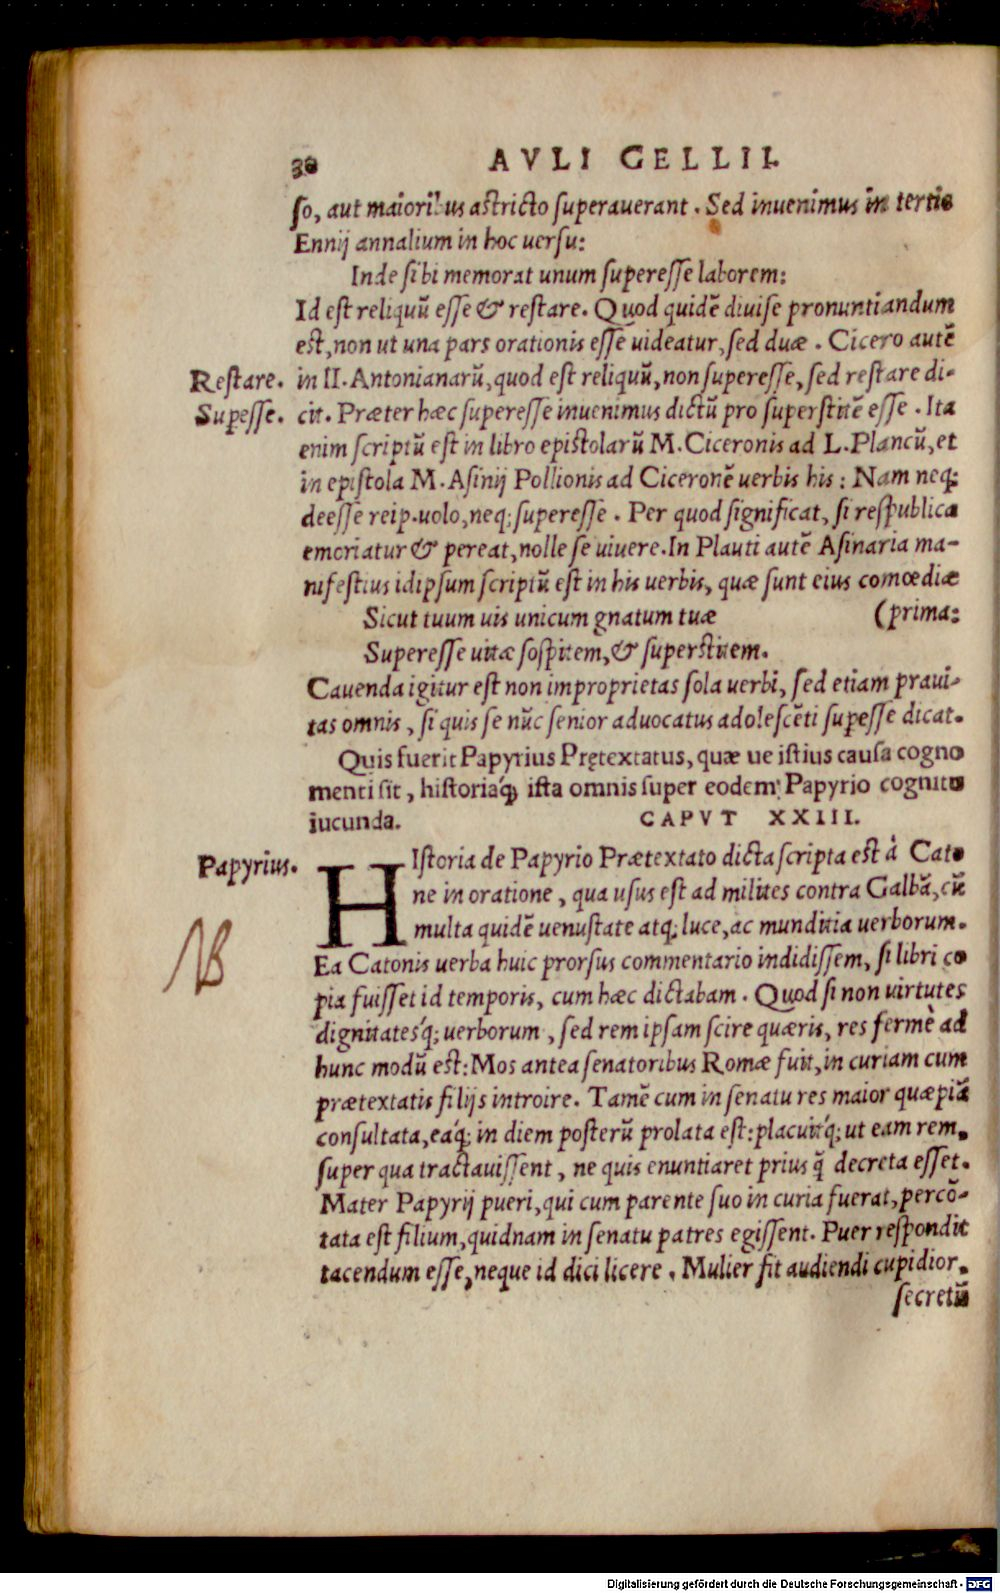 30 AVLI GELLII.
ſo, aut maioribus aſtricto ſuperauerant. Sed inuenimus in tertio
Ennij annalium in hoc uerſu:
Inde ſibi memorat unum ſupereſſe laborem:
Id eſt reliquũ eſſe & reſtare. Quod quidẽ diuiſe pronuntiandum
eſt, non ut una pars orationis eſſe uideatur, ſed duæ. Cicero autẽ
Reſtare. in II. Antonianarũ, quod eſt reliquũ, non ſupereſſe, ſed reſtare di-
Suꝑeſſe. cit. Præter hæc ſupereſſe inuenimus dictũ pro ſuperſtitẽ eſſe. Ita
enim ſcriptũ eſt in libro epiſtolarũ M. Ciceronis ad L. Plancũ, et
in epiſtola M. Aſinij Pollionis ad Ciceronẽ uerbis his: Nam neq;
deeſſe reip. uolo, neq; ſupereſſe. Per quod ſignificat, ſi reſpublica
emoriatur & pereat, nolle ſe uiuere. In Plauti autẽ Aſinaria ma-
nifeſtius idipſum ſcriptũ eſt in his uerbis, quæ ſunt eius comœdiæ
Sicut tuum uis unicum gnatum tuæ (prima:
Supereſſe uitæ ſoſpitem, & ſuperſtitem.
Cauenda igitur eſt non improprietas ſola uerbi, ſed etiam praui-
tas omnis, ſi quis ſe nũc ſenior aduocatus adoleſcẽti ſuꝑeſſe dicat.
Quis fuerit Papyrius Prętextatus, quæ ue iſtius cauſa cogno
menti ſit, hiſtoriaq́; iſta omnis ſuper eodem Papyrio cognitu
iucunda. CAPVT XXIII.
Papyrius. HIſtoria de Papyrio Prætextato dicta ſcripta eſt à Cato
ne in oratione, qua uſus eſt ad milites contra Galbã, cũ
multa quidẽ uenuſtate atq; luce, ac munditia uerborum.
NB
Ea Catonis uerba huic prorſus commentario indidiſſem, ſi libri co
pia fuiſſet id temporis, cum hæc dictabam. Quod ſi non uirtutes
dignitatesq́; uerborum, ſed rem ipſam ſcire quæris, res fermè ad
hunc modũ eſt: Mos antea ſenatoribus Romæ fuit, in curiam cum
prætextatis filijs introire. Tamẽ cum in ſenatu res maior quæpiã
conſultata, eaq́; in diem poſterũ prolata eſt: placuitq́; ut eam rem,
ſuper qua tractauiſſent, ne quis enuntiaret prius q̃ decreta eſſet.
Mater Papyrij pueri, qui cum parente ſuo in curia fuerat, percõ-
tata eſt filium, quidnam in ſenatu patres egiſſent. Puer reſpondit
tacendum eſſe, neque id dici licere. Mulier fit audiendi cupidior.
ſecretũ
Digitalisierung gefördert durch die Deutsche Forschungsgemeinschaft - DFG